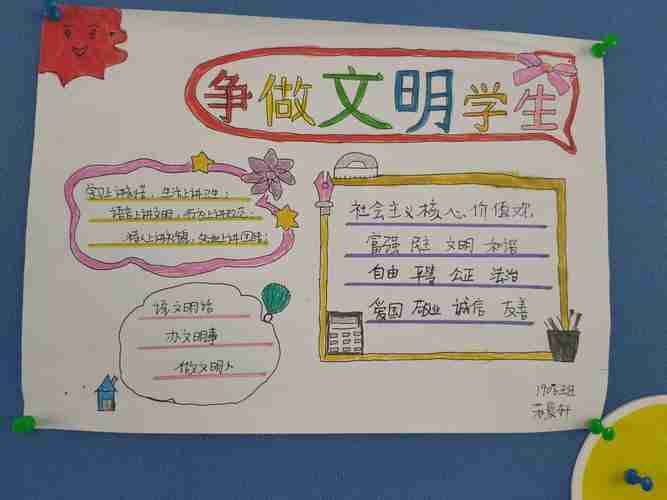 争做文明学生
学习上讲勤奋，生活上讲卫生；
语言上讲文明，行为上讲规范；
待人上讲礼貌，交往上讲团结；
社会主义核心价值观
富强 民主 文明 和谐
自由 平等 公正 法治
爱国 敬业 诚信 友善
说文明话
办文明事
做文明人